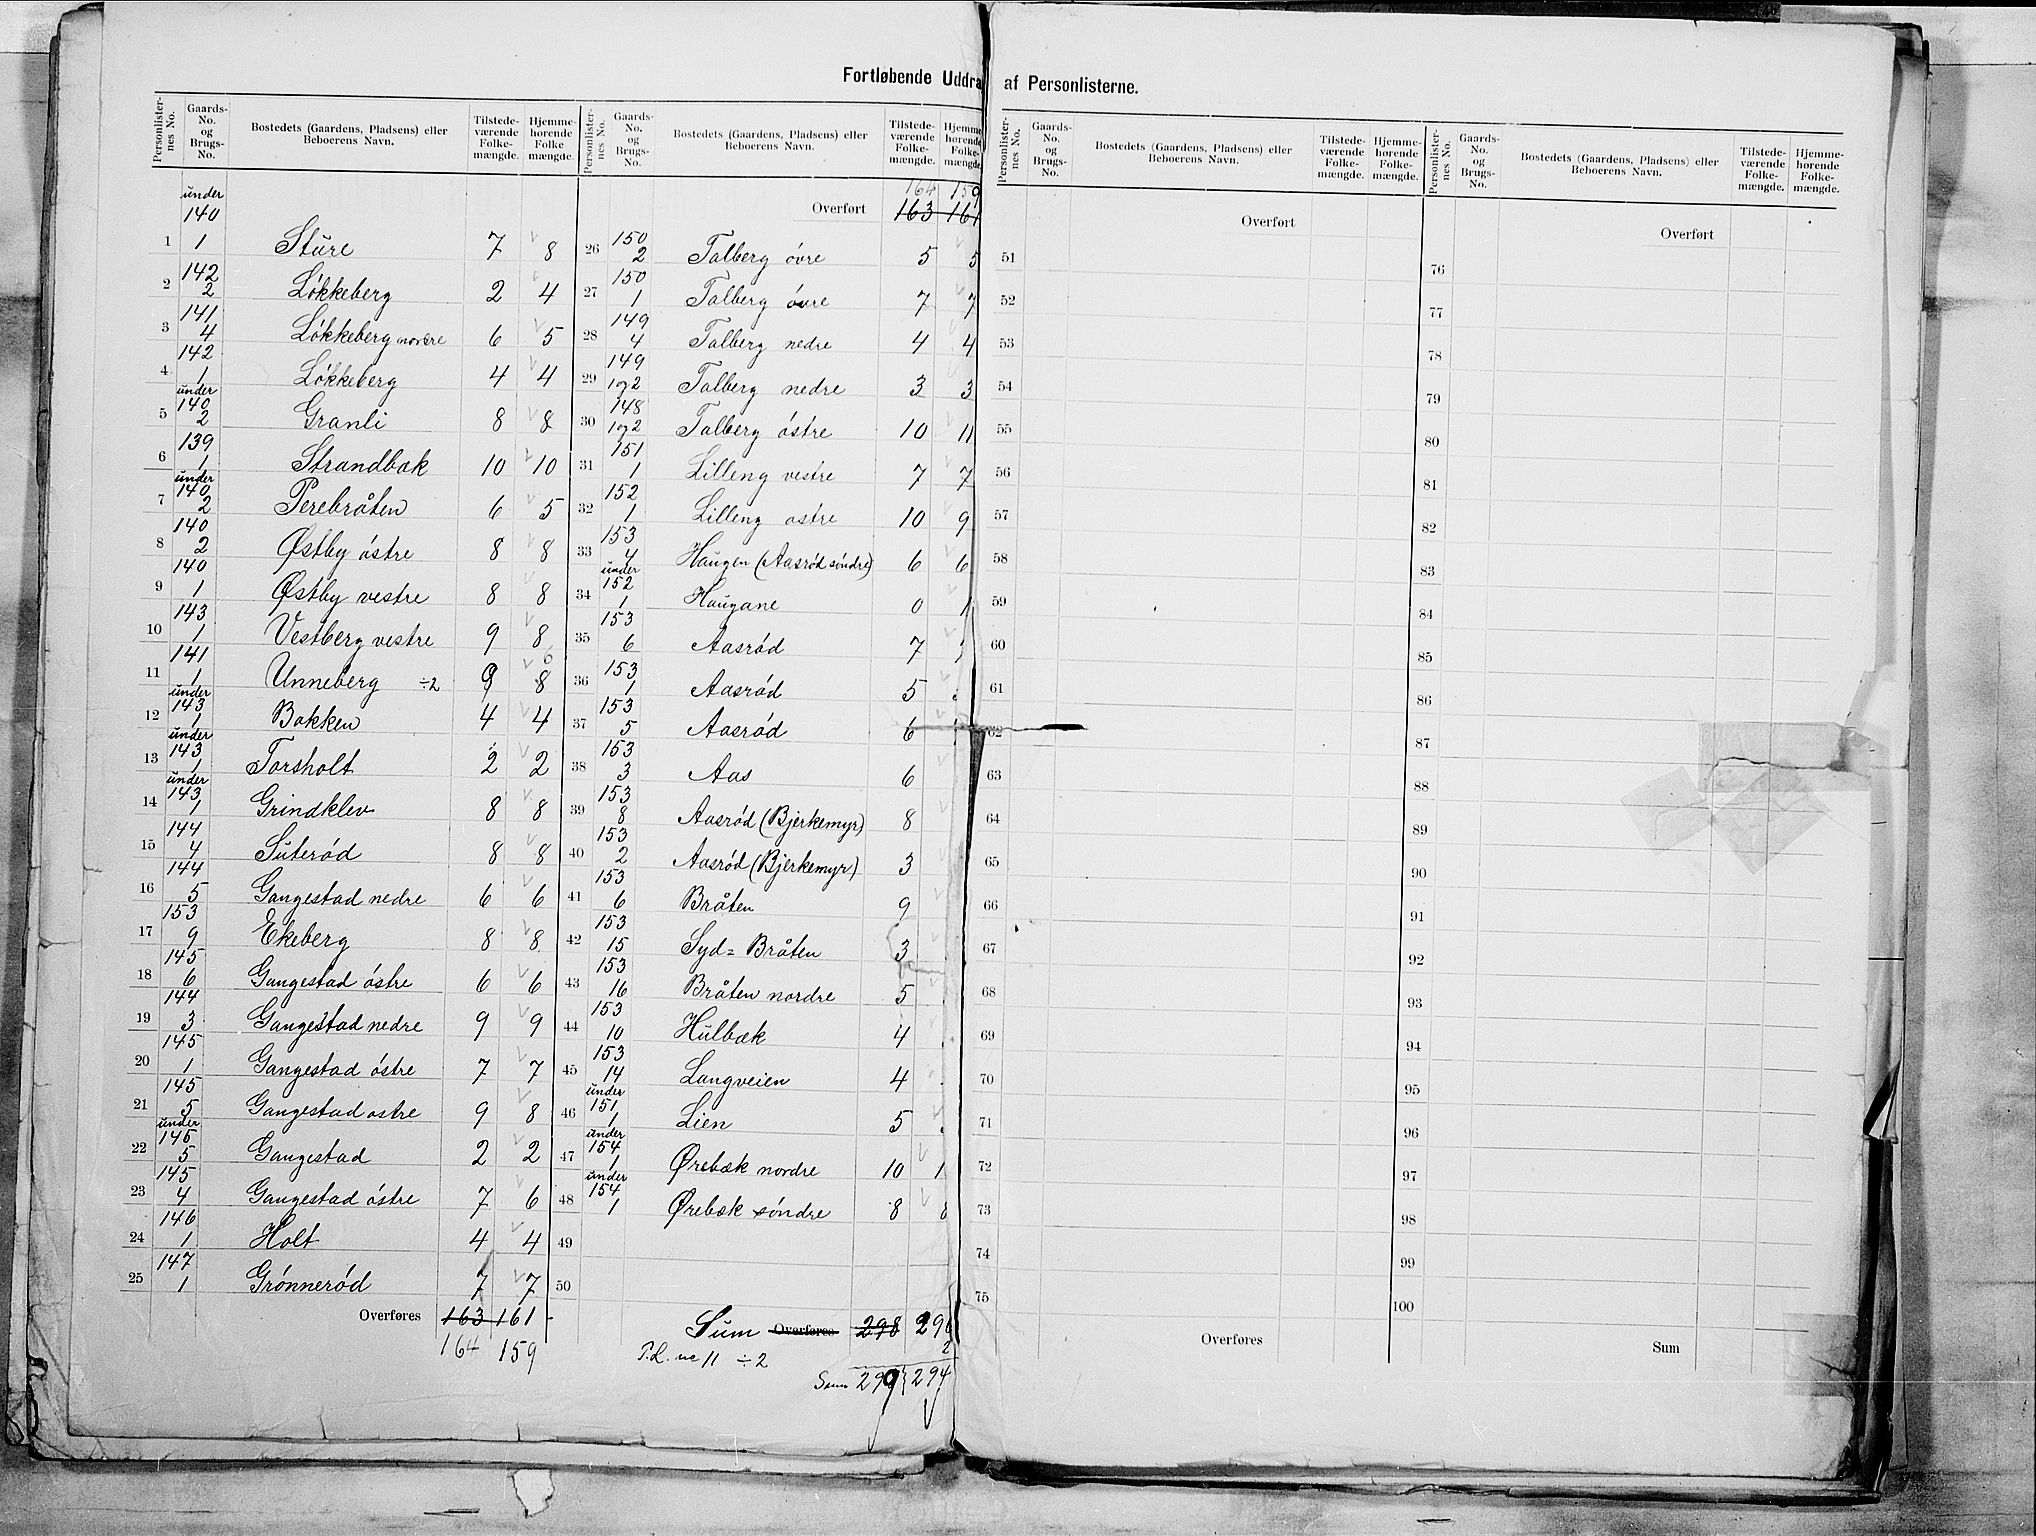 Fortløbende Uddra af Personlisterne.
Personlister-nes No. Gaards-No. og Brugs-No. Bostedets (Gaardens, Pladsens) eller Beboerens Navn. Tilstede-værende Folke-mængde. Hjemme-hørende Folke mængde.
under 140
1 1 Sture 7 8
142
2 2 Løkkeberg 2 4
141
3 4 Løkkeberg nordre 6 5
142
4 1 Løkkeberg 4 4
under 140
5 2 Granli 8 8
139
6 1 Strandbak 10 10
under 140
7 2 Perebråten 6 5
140
8 2 Østby østre 8 8
140
9 1 Østby vestre 8 8
143
10 1 Vestberg vestre 9 8
141 6
11 1 Unneberg ÷2 9 8
under 143
12 1 Bakken 4 4
under 143
13 1 Torsholt 2 2
under 143
14 1 Grindklev 8 8
144
15 4 Suterød 8 8
144
16 5 Gangestad nedre 6 6
153
17 9 Ekeberg 8 8
145
18 6 Gangestad østre 6 6
144
19 3 Gangestad nedre 9 9
145
20 1 Gangestad østre 7 7
145
21 5 Gangestad østre 9 8
under 145
22 5 Gangestad 2 2
145
23 4 Gangestad østre 7 6
146
24 1 Holt 4 4
147
25 1 Grønnerød 7 7
Overføres 163 161
164 159
Personlister-nes No. Gaards-No. og Brugs-No. Bostedets (Gaardens, Pladsens) eller Beboerens Navn. Tilstede-værende Folke-mængde. Hjemme hørende Folke-mængde.
164 159
Overført 163 161
150
26 2 Talberg øvre 5 5
150
27 1 Talberg øvre 7 7
149
28 4 Talberg nedre 4 4
149
29 1og2 Talberg nedre 3 3
148
30 1og2 Talberg østre 10 11
151
31 1 Lilleng vestre 7 7
152
32 1 Lilleng østre 10 9
153
33 4 Haugen (Aasrød søndre) 6 6
under 152
34 1 Haugane 0 1
153
35 6 Aasrød 7
153
36 1 Aasrød 5
153
37 5 Aasrød 6
153
38 3 Aas 6
153
39 8 Aasrød (Bjerkemyr) 8
153
40 2 Aasrød (Bjerkemyr) 3
153
41 6 Bråten 9
153
42 15 Syd= Bråten 3
153
43 16 Bråten nordre 5
153
44 10 Hulbæk 4
153
45 14 Langveien 4
under 151
46 1 Lien 5
under 154
47 1 Ørebæk nordre 10 1
under 154
48 1 Ørebæk søndre 8 8
49
50
Sum Overføres 298 296
P.L. no 11 ÷2 2
Sum 299 294
Personlister-nes No. Gaards-No. og Brugs-No. Bostedets (Gaardens, Pladsens) eller Beboerens Navn. Tilstede-værende Folke-mængde. Hjemme-hørende Folke-mængde.
Overført
51
52
53
54
55
56
57
58
59
60
61
62
63
64
65
66
67
68
69
70
71
72
73
74
75
Overføres
Personlister-nes No. Gaards-No. og Brugs-No. Bostedets (Gaardens, Pladsens) eller Beboerens Navn. Tilstede-værende Folke-mængde. Hjemme-hørende Folke-mængde.
Overført
76
77
78
79
80
81
82
83
84
85
86
87
88
89
90
91
92
93
94
95
96
97
98
99
100
Sum